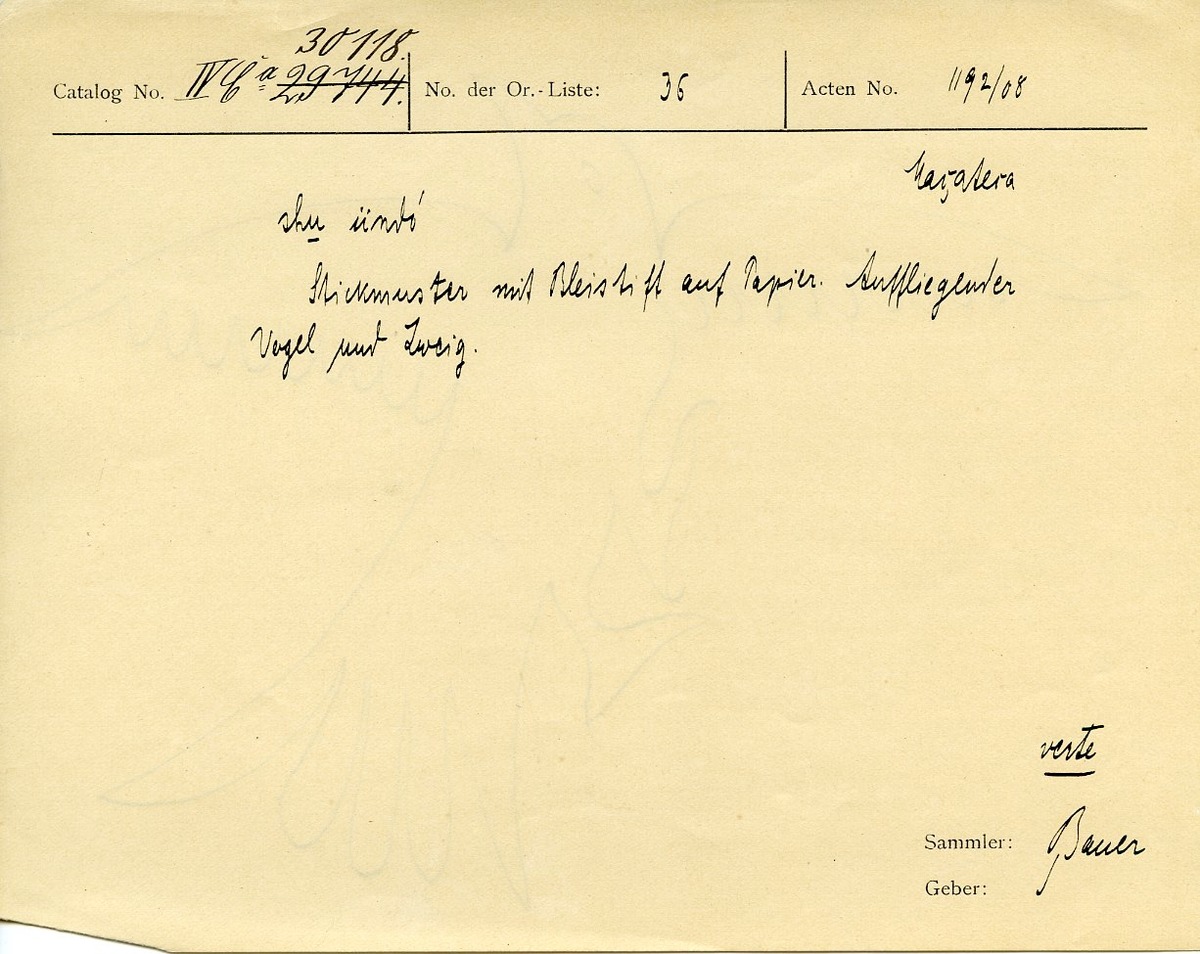 30118.
Catalog No. IV Ca 29744. No. der Or.-Liste: 36 Acten No. 1192/08
Mazateca
shu ündó
Stickmuster mit Bleistift auf Papier. Auffliegender
Vogel und Zweig.
verte
Sammler: Bauer
Geber: